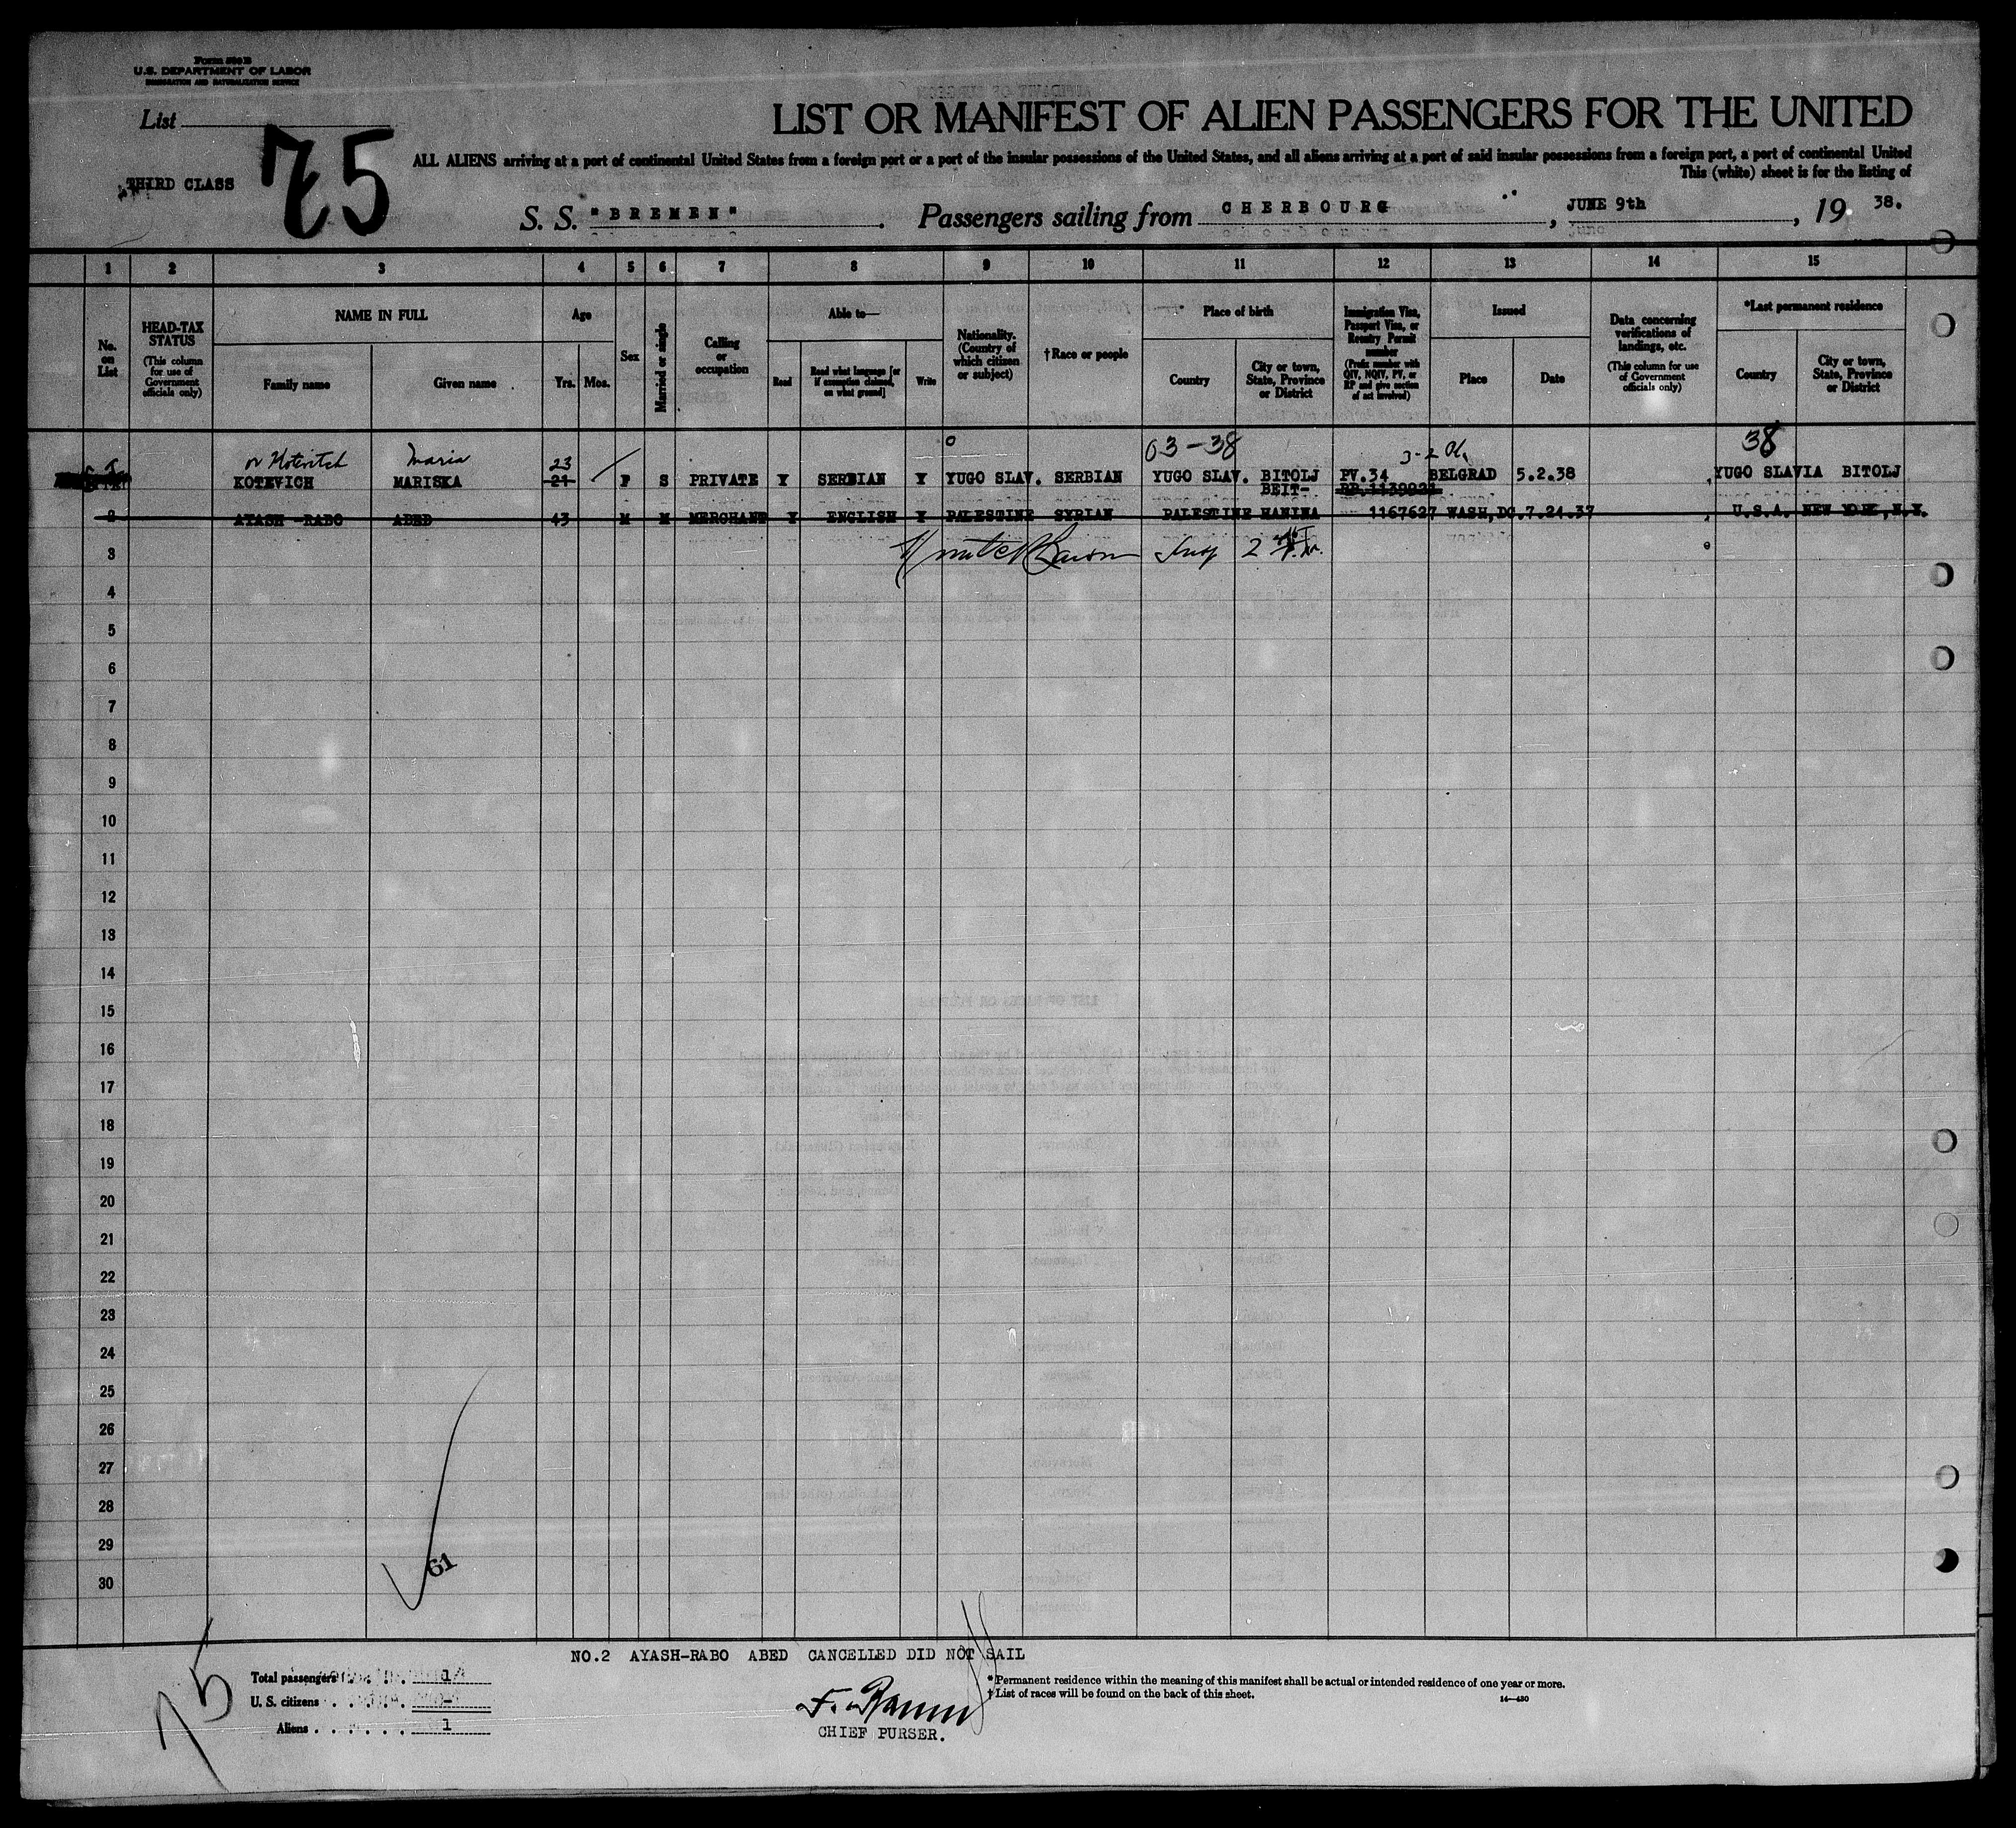 Form 500 B
U.S. DEPARTMENT OF LABOR
IMMIGRATION AND NATURALIZATION SERVICE
List
75
THIRD CLASS
LIST OR MANIFEST OF ALIEN PASSENGERS FOR THE UNITED
ALL ALIENS arriving at a port of continental United States from a foreign port or a port of the insular possessions of the United States, and all aliens arriving at a port of said insular possessions from a foreign port, a port of continental United
This (white) sheet is for the listing of
S. S. "BREMEN". Passengers sailing from CHERBOURG, JUNE 9th, 19 38.
1 2 3 4 5 6 7 8 9 10 11 12 13 14 15
No. on List
HEAD-TAX STATUS (This column for use of Government officials only)
NAME IN FULL
Family name
Given name
Age
Yrs. Mos.
Sex
Married or single
Calling or occupation
Able to—
Read
Read what language [or if exemption claimed, on what ground]
Write
Nationality. (Country of which citizen or subject)
†Race or people
Place of birth
Country
City or town, State, Province or District
Immigration Visa, Passport Visa, or Reentry Permit number (Prefix number with QIV, NQIV, PV, or RP and give section of act involved)
Issued
Place
Date
Data concerning verifications of landings, etc. (This column for use of Government officials only)
*Last permanent residence
Country
City or town, State, Province or District
or Kotevitch Maria 23 03-38 3-2 38
KOTEVICH MARISKA 21 F S PRIVATE Y SERBIAN Y YUGO SLAV. SERBIAN YUGO SLAV. BITOLJ PV.34 BELGRAD 5.2.38 YUGO SLAVIA BITOLJ
BEIT- RP.1139921
2 AYASH-RABO ABED 43 M M MERCHANT Y ENGLISH Y PALESTINE SYRIAN PALESTINE HANINA 1167627 WASH,DC.7.24.37 U.S.A. NEW YORK,N.Y.
3
4
5
6
7
8
9
10
11
12
13
14
15
16
17
18
19
20
21
22
23
24
25
26
27
28
29
30
61
NO.2 AYASH-RABO ABED CANCELLED DID NOT SAIL
75
Total passengers . . . . 1
U. S. citizens . . . . . -
Aliens . . . . . . 1
CHIEF PURSER.
*Permanent residence within the meaning of this manifest shall be actual or intended residence of one year or more.
†List of races will be found on the back of this sheet.
14—430